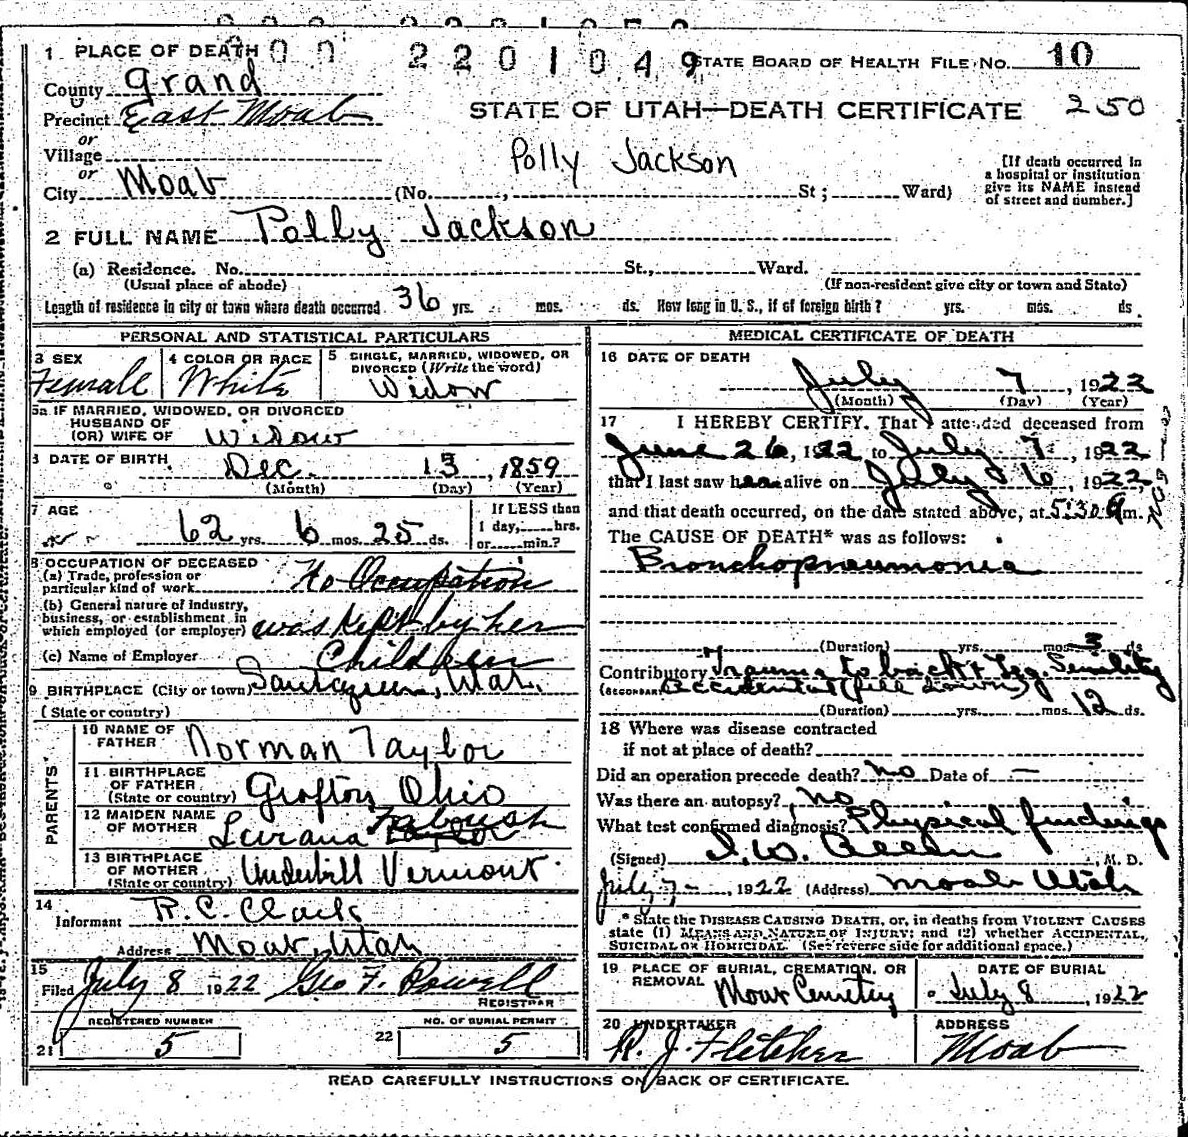 2201049
1 PLACE OF DEATH
STATE BOARD OF HEALTH FILE NO. 10
County Grand
STATE OF UTAH—DEATH CERTIFICATE 250
Precinct East Moab
or
Village
Polly Jackson
[If death occurred in a hospital or institution give its NAME instead of street and number.]
or
City Moab (No. , St; Ward)
2 FULL NAME Polly Jackson
(a) Residence. No. St., Ward.
(Usual place of abode) (If non-resident give city or town and State)
Length of residence in city or town where death occurred 36 yrs. mos. ds. How long in U. S., if of foreign birth? yrs. mos. ds.
PERSONAL AND STATISTICAL PARTICULARS
3 SEX Femall
4 COLOR OR RACE White
5 SINGLE, MARRIED, WIDOWED, OR DIVORCED (Write the word)
Widow
5a IF MARRIED, WIDOWED, OR DIVORCED
HUSBAND OF
(OR) WIFE OF Widow
DATE OF BIRTH Dec. 13, 1859
(Month) (Day) (Year)
7 AGE
62 yrs. 6 mos. 25 ds.
If LESS than
1 day, hrs.
or min.?
8 OCCUPATION OF DECEASED
(a) Trade, profession or particular kind of work No Occupation
(b) General nature of industry, business, or establishment in which employed (or employer) was kept by her
(c) Name of Employer Children
9 BIRTHPLACE (City or town) Utah.
(State or country)
PARENTS'
10 NAME OF FATHER Norman Taylor
11 BIRTHPLACE OF FATHER (State or country) Grafton Ohio
12 MAIDEN NAME OF MOTHER Lurana
13 BIRTHPLACE OF MOTHER (State or country) Underhill Vermont.
14
Informant R. C. Clark
Address Moab, Utah
15
Filed July 8 1922 Geo F. Powell
REGISTRAR
REGISTERED NUMBER
21 5
NO. OF BURIAL PERMIT
22 5
MEDICAL CERTIFICATE OF DEATH
16 DATE OF DEATH
July 7, 1922
(Month) (Day) (Year)
17 I HEREBY CERTIFY. That I attended deceased from
June 26, 1922, to July 7, 1922
that I last saw her alive on July 6, 1922,
and that death occurred, on the date stated above, at 5:30 m.
The CAUSE OF DEATH* was as follows:
Bronchopneumonia
(Duration) yrs. mos. 3 ds
Contributory Trauma to back & leg. Senility
(SECONDARY) Accidental (fell down)
(Duration) yrs. mos. 12 ds.
18 Where was disease contracted
if not at place of death?
Did an operation precede death? no Date of —
Was there an autopsy? no
What test confirmed diagnosis? Physical findings
(Signed) I. W. Allen, M. D.
July 7-, 1922 (Address) Moab Utah
* State the DISEASE CAUSING DEATH, or, in deaths from VIOLENT CAUSES
state (1) MEANS AND NATURE OF INJURY; and (2) whether ACCIDENTAL,
SUICIDAL OR HOMICIDAL. (See reverse side for additional space.)
19 PLACE OF BURIAL, CREMATION, OR REMOVAL Moab Cemetery
DATE OF BURIAL
July 8, 1922
20 UNDERTAKER
R. J. Fletcher
ADDRESS
Moab
READ CAREFULLY INSTRUCTIONS ON BACK OF CERTIFICATE.